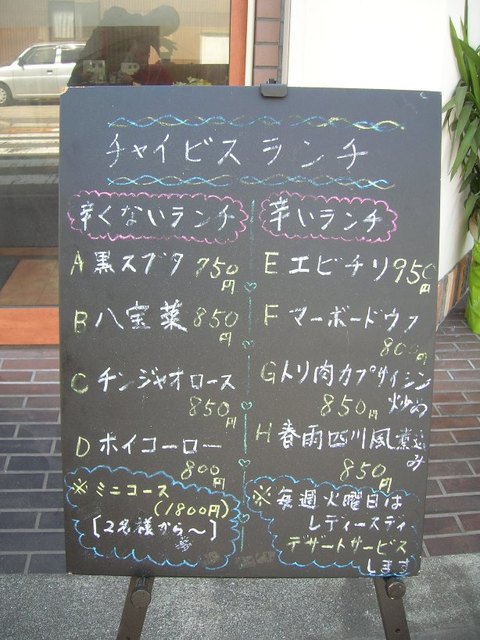 チャイビスランチ
辛くないランチ
A 黒スブタ 750円
B 八宝菜 850円
C チンジャオロース
850円
D ホイコーロー
800円
※ミニコース
(1800円)
[2名様から〜]
辛いランチ
E エビチリ 950円
F マーボードウフ
800円
G トリ肉カプサイシン
850円 炒め
H 春雨四川風煮込み
850円
※毎週火曜日は
レディースティ
デザートサービス
します